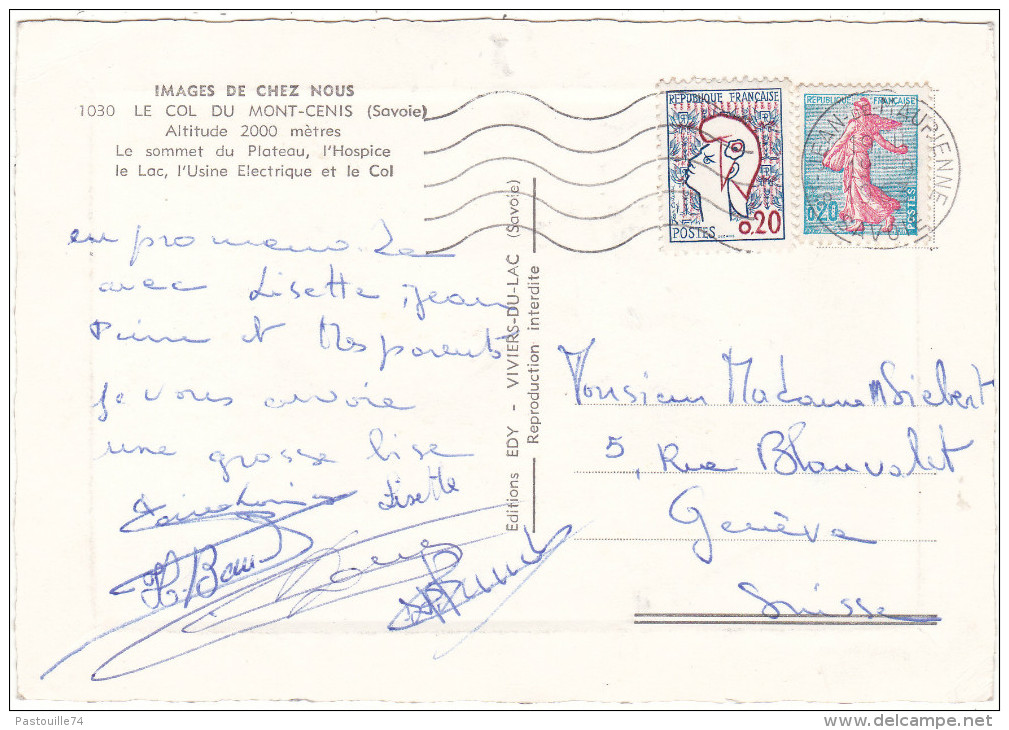 IMAGES DE CHEZ NOUS
1030 LE COL DU MONT-CENIS (Savoie)
Altitude 2000 mètres
Le sommet du Plateau, l'Hospice
le Lac, l'Usine Electrique et le Col
en promenade
avec Lisette, Jean
Pierre et tes parents
je vous envoie
une grosse bise
Lisette
Editions EDY - VIVIERS-DU-LAC (Savoie)
Reproduction interdite
REPUBLIQUE FRANÇAISE
POSTES 0,20
REPUBLIQUE FRANÇAISE
0,20 POSTES
JEAN-DE-MAURIENNE
SAVOIE
Monsieur Madame Siebert
5, Rue Blanvalet
Genève
Suisse
Pastouille74
www.delcampe.net